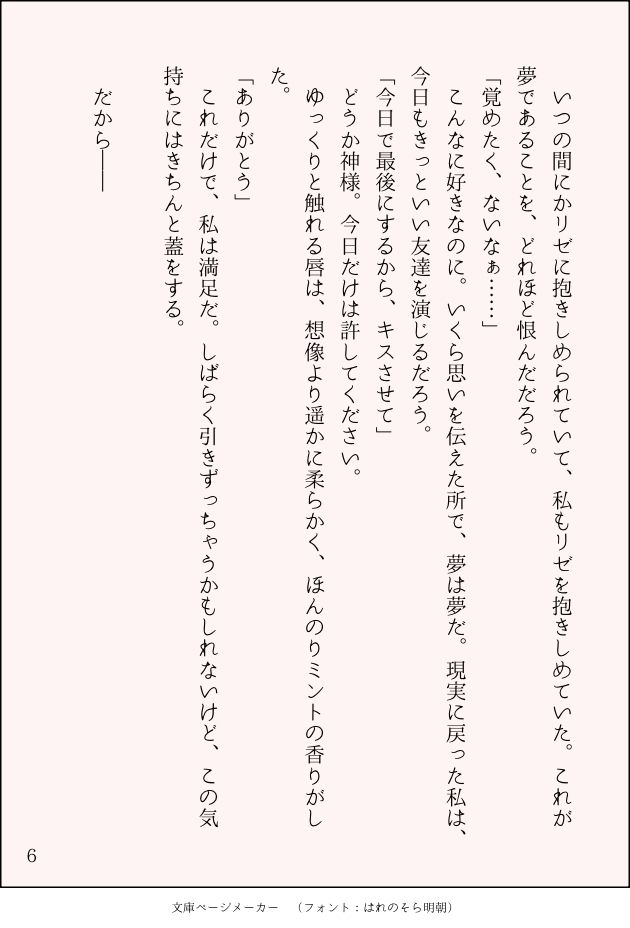 いつの間にかリゼに抱きしめられていて、私もリゼを抱きしめていた。これが
夢であることを、どれほど恨んだだろう。
「覚めたく、ないなぁ……」
　こんなに好きなのに。いくら思いを伝えた所で、夢は夢だ。現実に戻った私は、
今日もきっといい友達を演じるだろう。
「今日で最後にするから、キスさせて」
　どうか神様。今日だけは許してください。
　ゆっくりと触れる唇は、想像より遥かに柔らかく、ほんのりミントの香りがし
た。
「ありがとう」
　これだけで、私は満足だ。しばらく引きずっちゃうかもしれないけど、この気
持ちにはきちんと蓋をする。
　だから――
6
文庫ページメーカー　（フォント：はれのそら明朝）